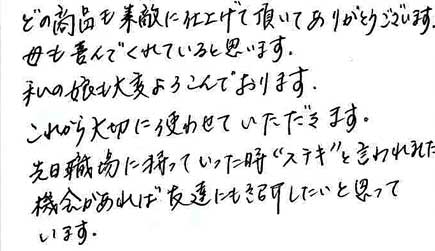 どの商品も素敵に仕上げて頂いてありがとうございます。
母も喜んでくれていると思います。
私の娘も大変よろこんでおります。
これから大切に使わせていただきます。
先日職場に持っていった時“ステキ”と言われた
機会があれば友達にも紹介したいと思って
います。